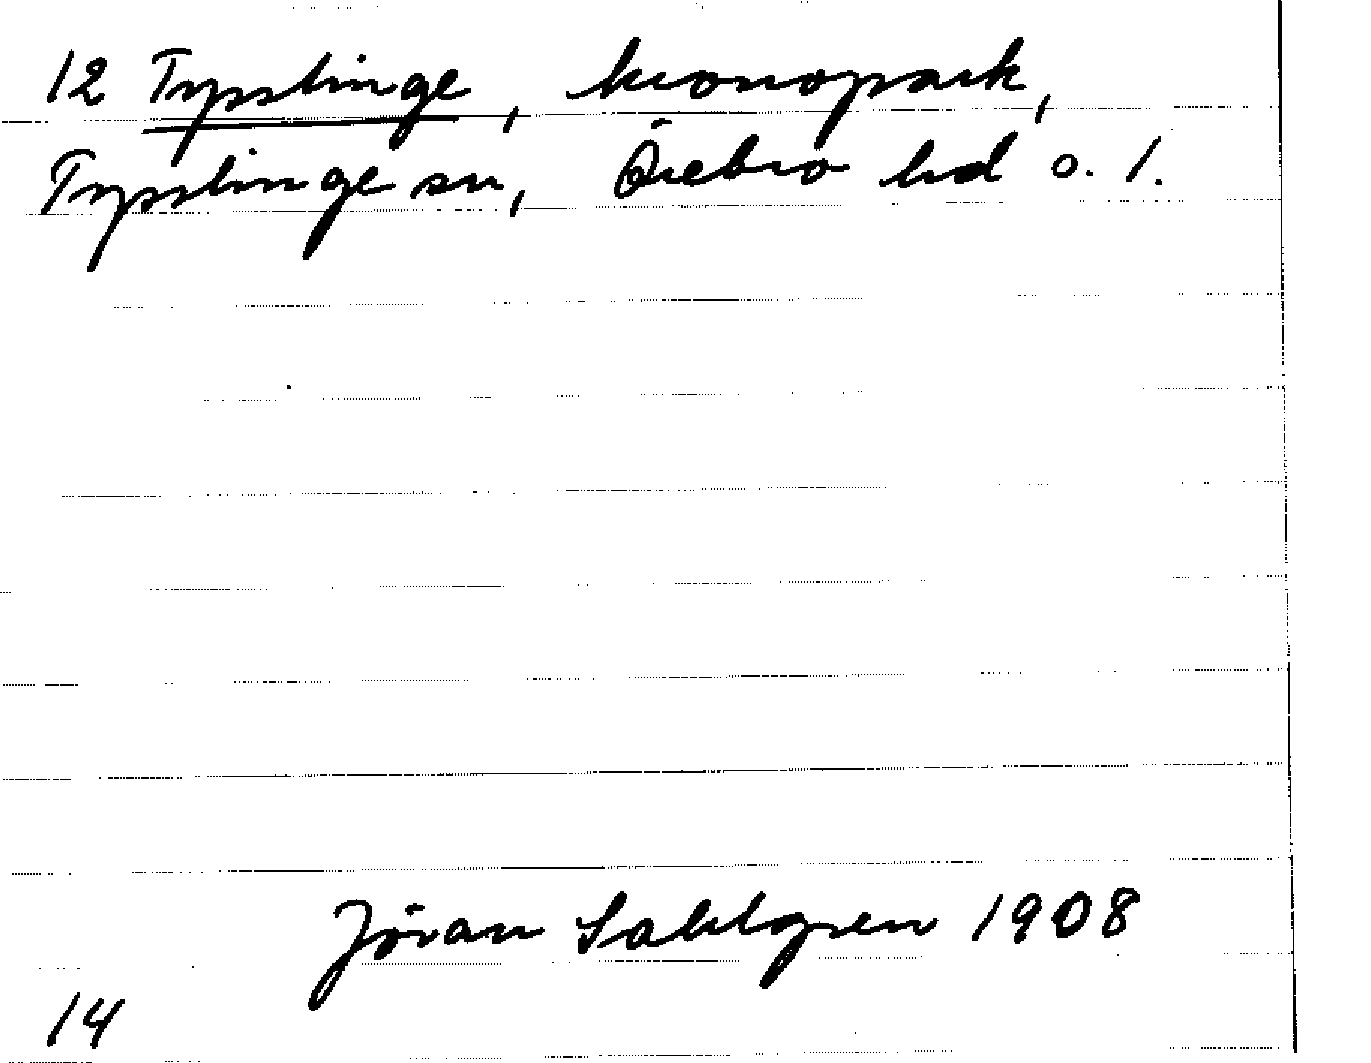 12 Tysslinge, kronopark,
Tysslinge sn, Örebro hd o. l.
Jöran Sahlgren 1908
14